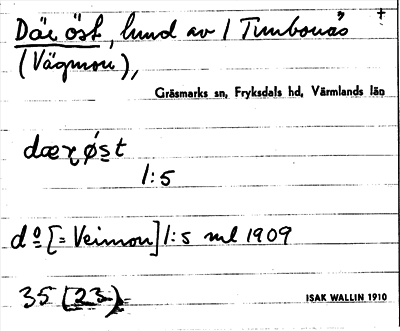 Där öst, lund av 1 Timbonäs †
(Vägmon),
Gräsmarks sn, Fryksdals hd, Värmlands län
dæɽ øst
1:5
do [= Veimon] 1:5 ml 1909
35 (23)
ISAK WALLIN 1910